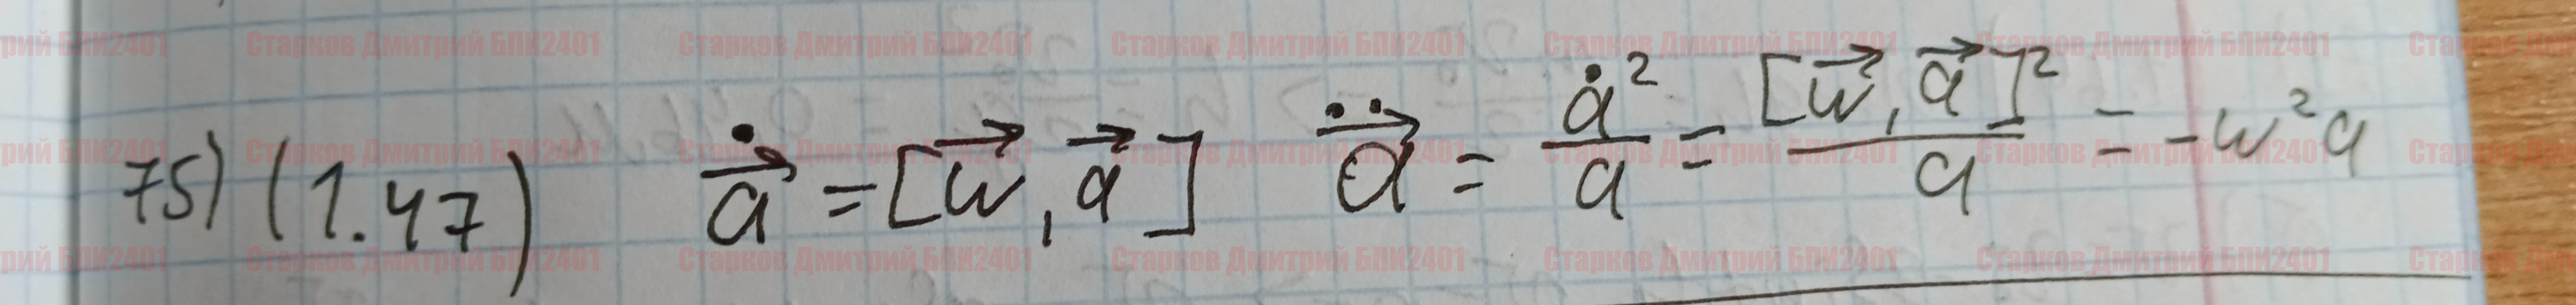 рий БПИ2401 Старков Дмитрий БПИ2401 Старков Дмитрий БПИ2401 Старков Дмитрий БПИ2401 Старков Дмитрий БПИ2401 Старков Дмитрий БПИ2401 Старков
75) (1.47) \dot{\vec{a}} = [\vec{w}, \vec{a}] \ddot{\vec{a}} = \frac{\dot{a}^2}{a} = \frac{[\vec{w}, \vec{a}]^2}{a} = -w^2 a
рий БПИ2401 Старков Дмитрий БПИ2401 Старков Дмитрий БПИ2401 Старков Дмитрий БПИ2401 Старков Дмитрий БПИ2401 Старков Дмитрий БПИ2401
рий БПИ2401 Старков Дмитрий БПИ2401 Старков Дмитрий БПИ2401 Старков Дмитрий БПИ2401 Старков Дмитрий БПИ2401 Старков Дмитрий БПИ2401